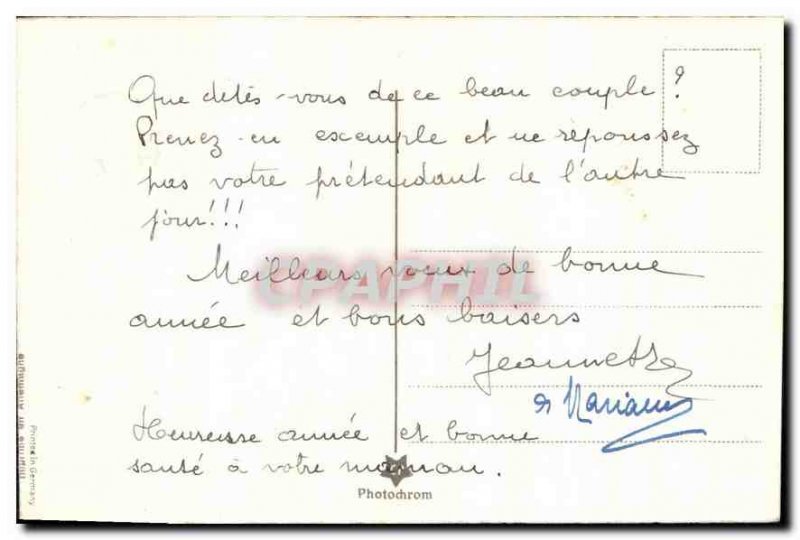 Que dites-vous de ce beau couple ?
Prenez-en exemple et ne repoussez
pas votre prétendant de l'autre
jour!!!
Meilleurs voeux de bonne
année et bons baisers
Jeannette
et Mariane
Heureuse année et bonne
santé à votre maman.
CPAPHIL
Photochrom
Imprimé en Allemagne
Printed in Germany